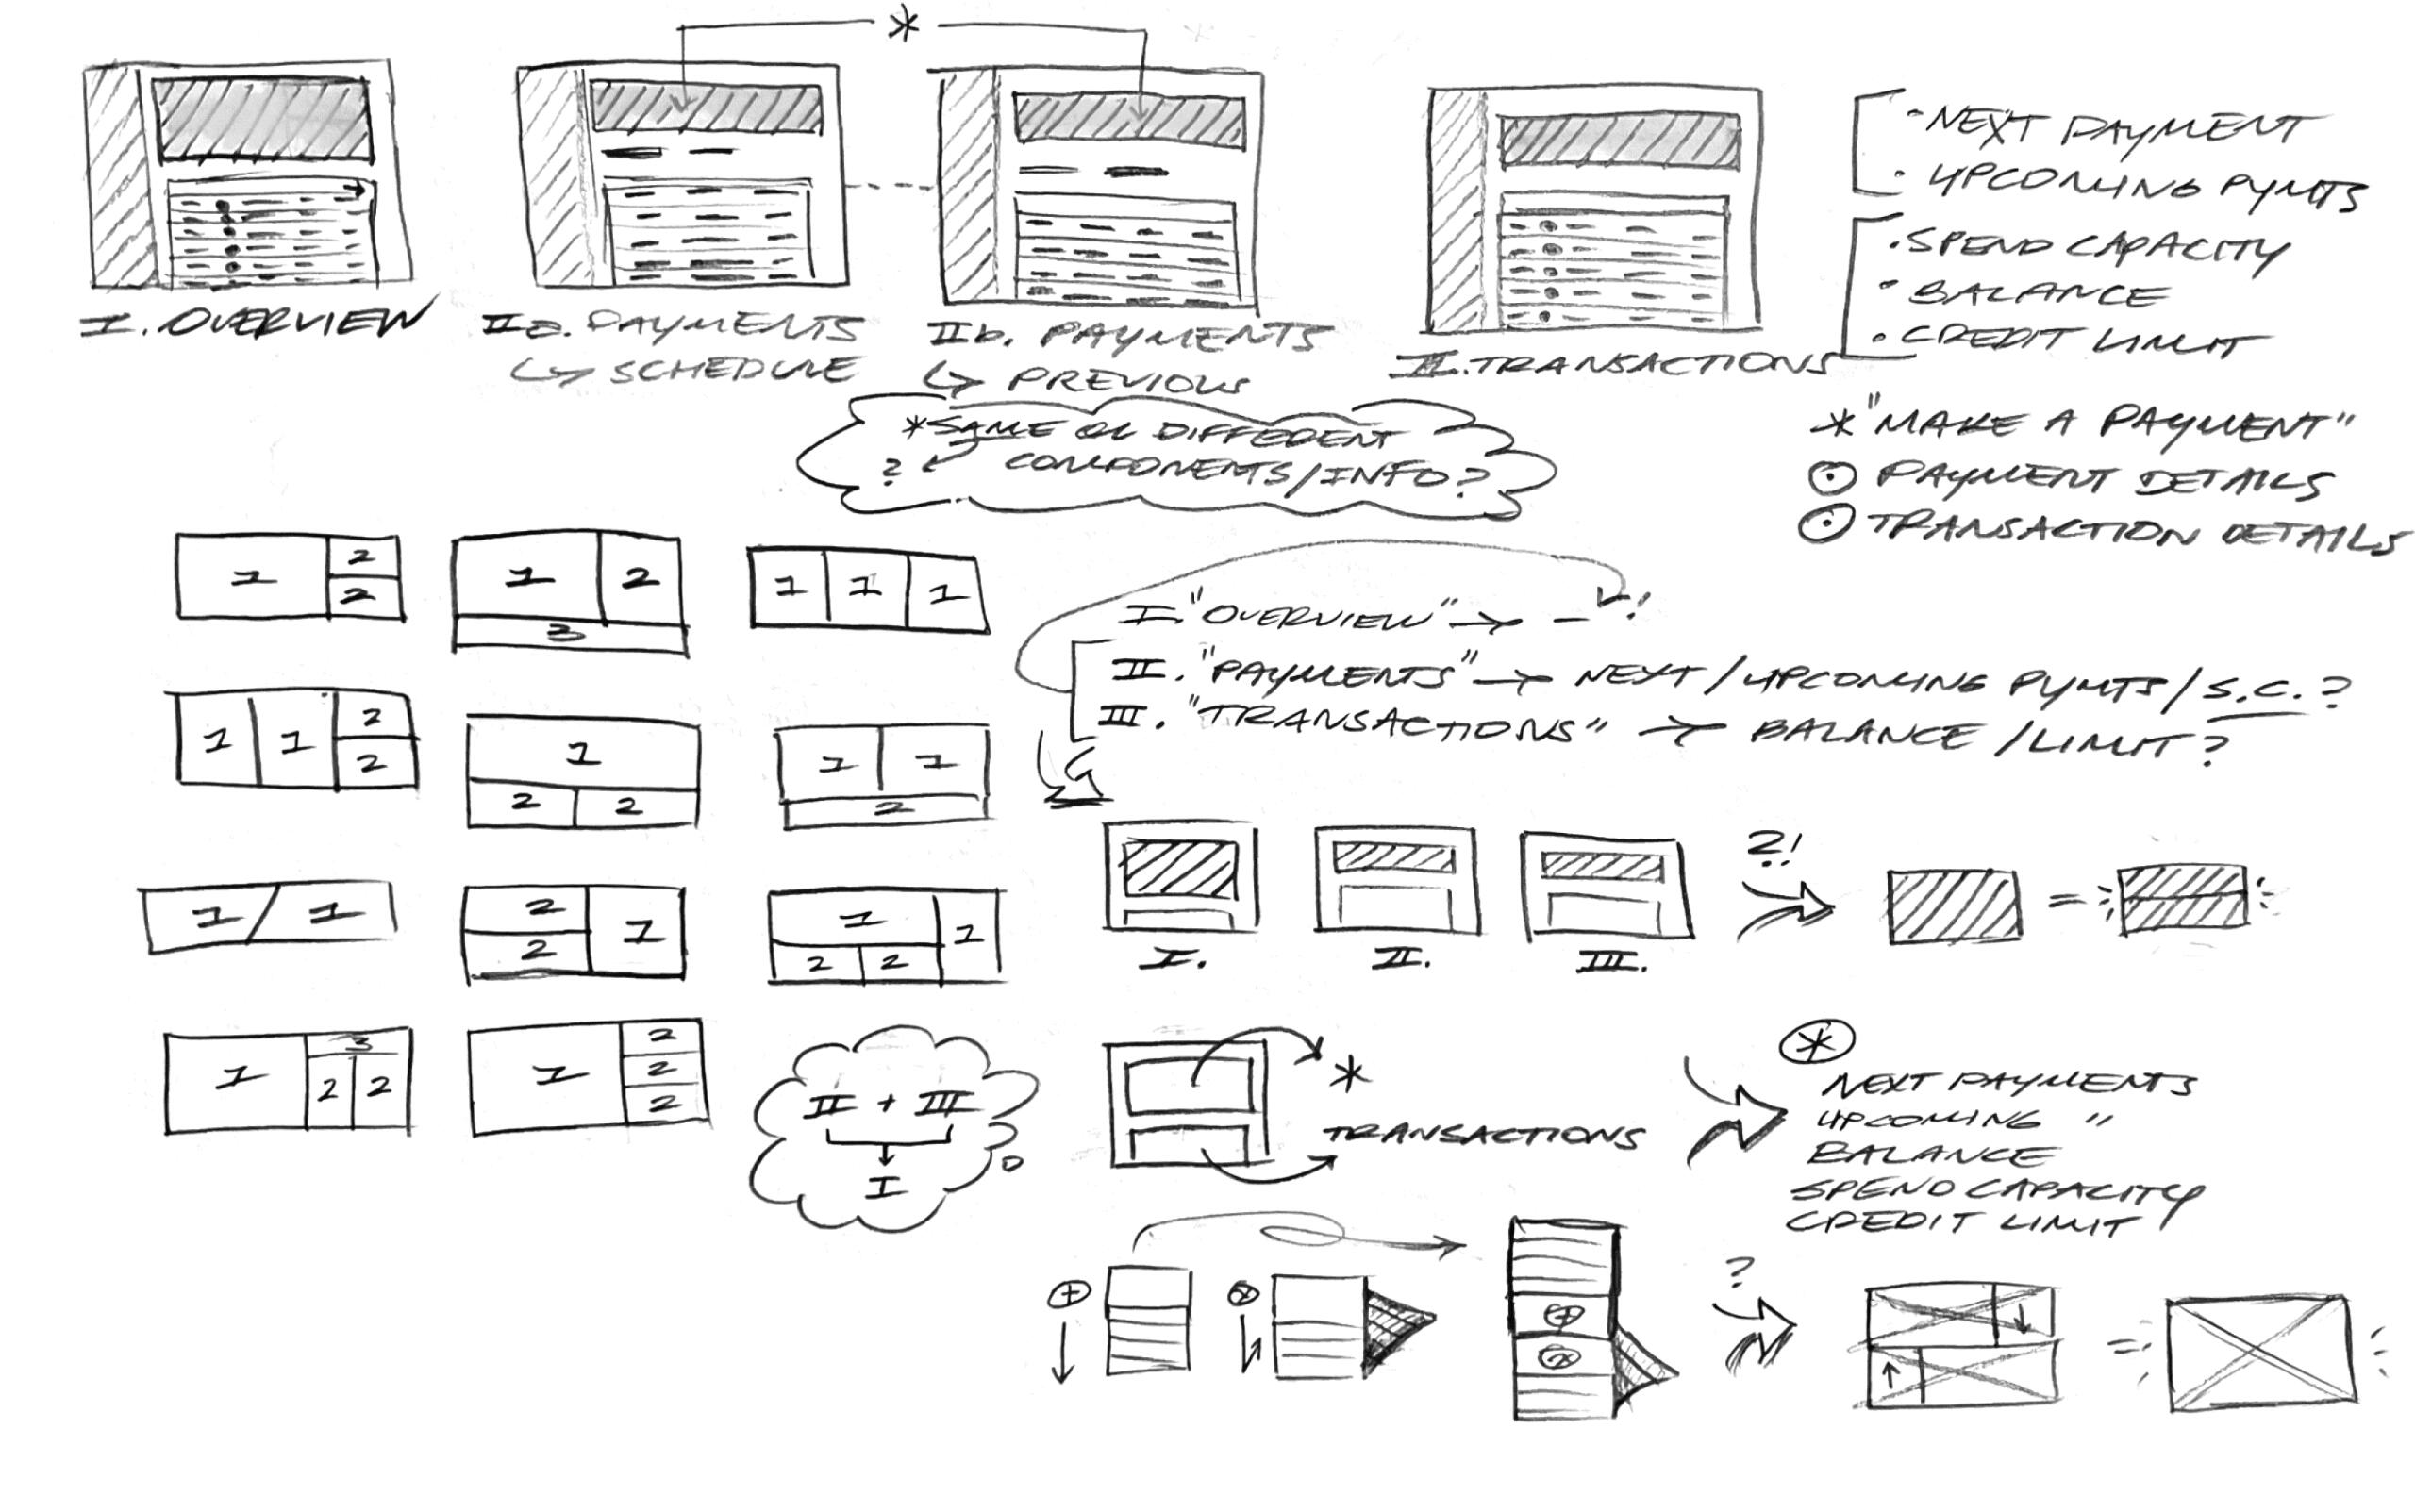 *
I. OVERVIEW
IIa. PAYMENTS
↳ SCHEDULE
IIb. PAYMENTS
↳ PREVIOUS
II. TRANSACTIONS
· NEXT PAYMENT
· UPCOMING PYMTS
· SPEND CAPACITY
· BALANCE
· CREDIT LIMIT
* "MAKE A PAYMENT"
⊙ PAYMENT DETAILS
⊙ TRANSACTION DETAILS
* SAME OR DIFFERENT
? ↙ COMPONENTS/INFO?
1 2 2
1 2 3
1 1 1
1 1 2 2
1 2 2
1 1 2
1 / 1
2 2 1
1 2 2 1
1 3 2 2
1 2 2 2
II + III
I
I. "OVERVIEW" → – !
II. "PAYMENTS" → NEXT / UPCOMING PYMTS / S.C. ?
III. "TRANSACTIONS" → BALANCE / LIMIT ?
I.
II.
III.
?!
=
*
TRANSACTIONS
*
NEXT PAYMENTS
UPCOMING "
BALANCE
SPEND CAPACITY
CREDIT LIMIT
?
=